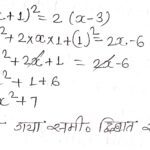 x+1)² = 2 (x-3)
² + 2×x×1+(1)² = 2x-6
² + 2x+1 = 2x-6
² + 1 + 6
x² + 7
गया समी० द्विघात